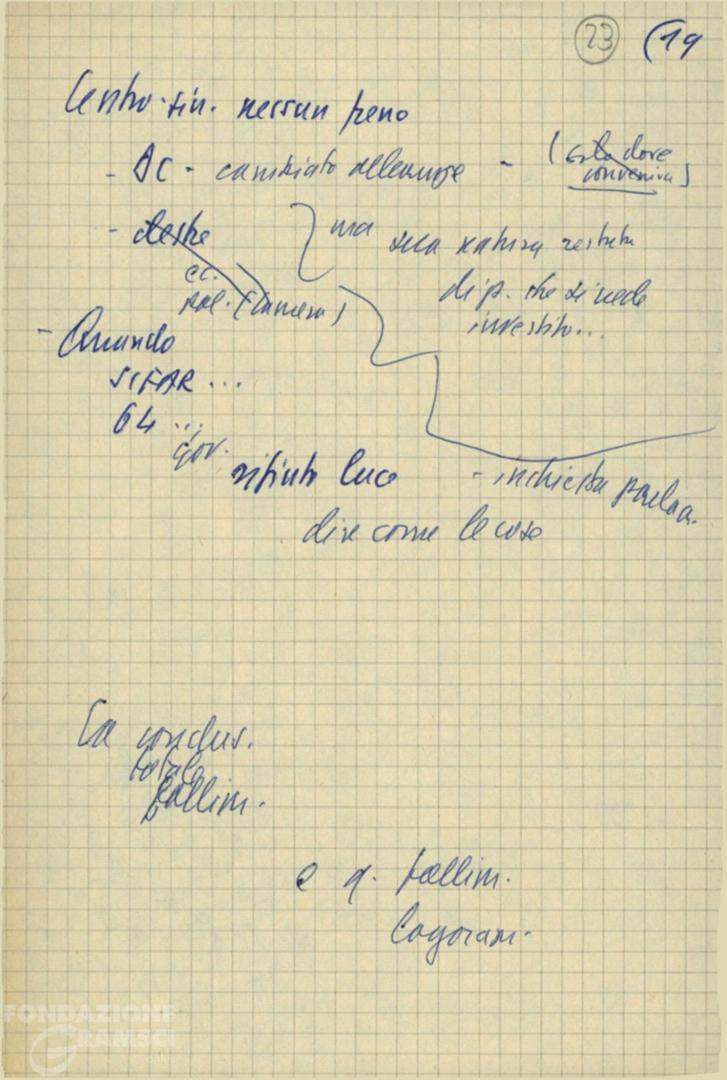 23 (19
Centro-sin. nessun freno
- DC - cambiato alleanze - (solo dove
conveniva)
- destre } ma sua natura restata
cc.
pol. (Camera) dip. che si vede
investito...
- Quando
SIFAR...
64...
gov.
rifiuto luce - inchiesta parlam.
dire come le cose
La conclus.
totale
fallim.
e q. fallim.
logoram.
FONDAZIONE
GRAMSCI